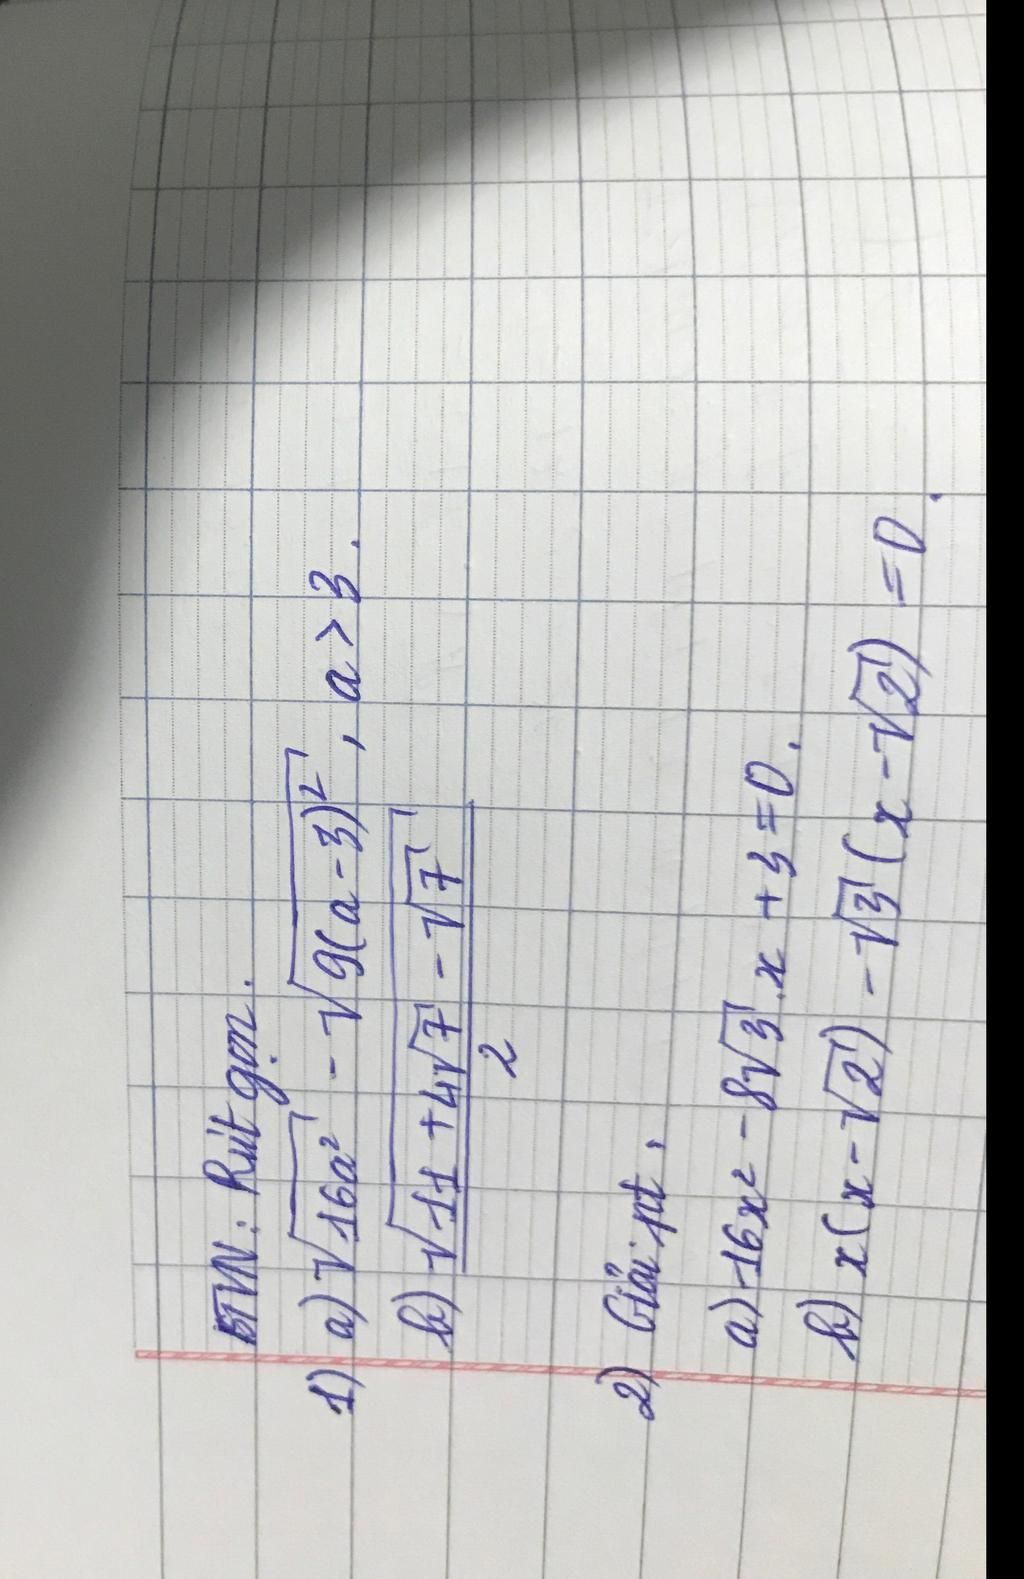 BTVN: Rút gọn.
1) a) √16a² - √9(a-3)², a > 3.
b) √11 + 4√7 - √7
2
2) Giải pt,
a) 16x² - 8√3.x + 3 = 0.
b) x(x-√2) - √3(x-√2) = 0.